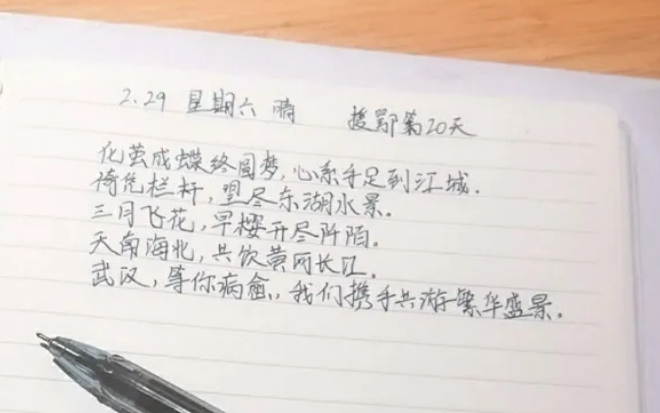 2.29 星期六 晴 援鄂第20天
化茧成蝶终圆梦,心系手足到江城.
倚凭栏杆,望尽东湖水景.
三月飞花,早樱开尽阡陌.
天南海北,共饮黄冈长江.
武汉,等你病愈,我们携手共游繁华盛景.